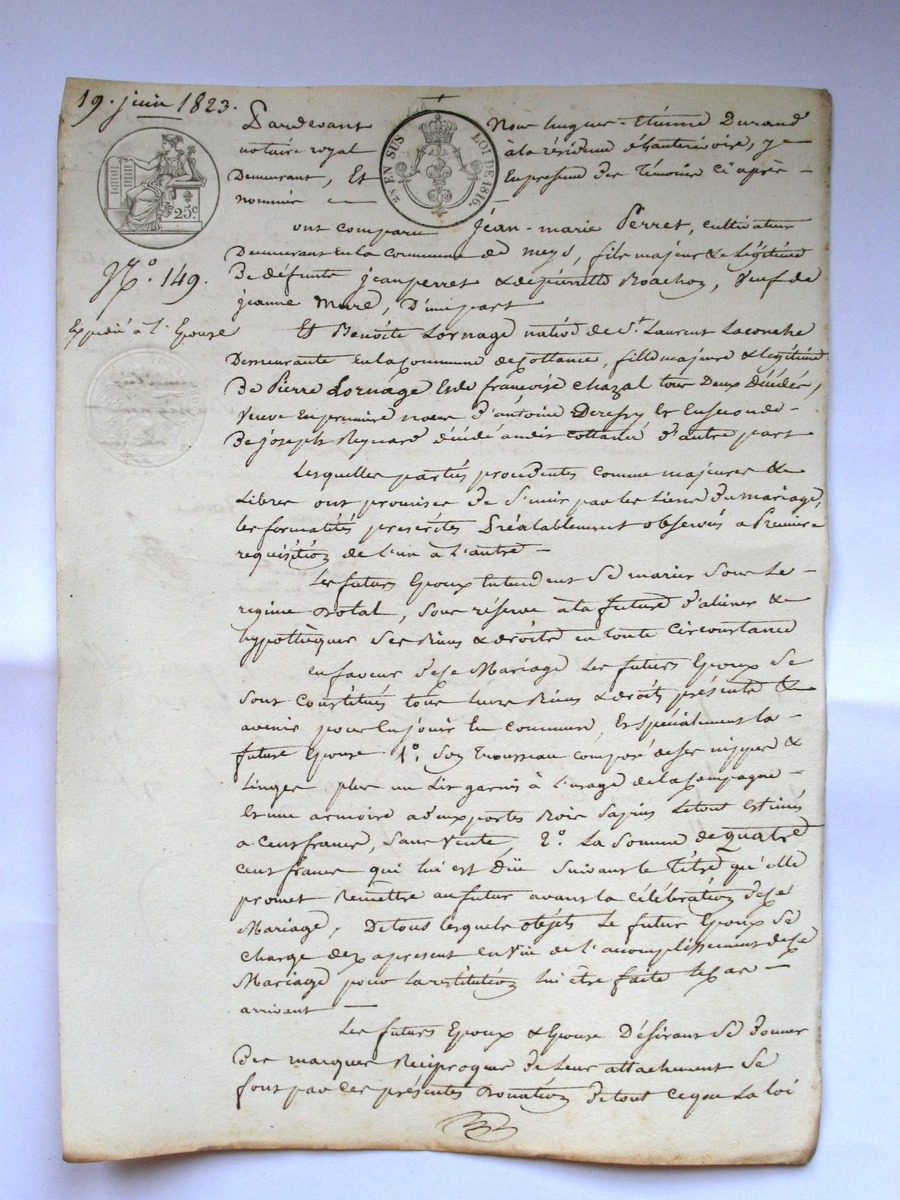 19. juin 1823.
Pardevant Nous hugues-Étienne Durand
notaire royal à la résidence d'hauterivoire, y
Demeurant, Et En présence des Témoins ci après
nommés
2s EN SUS LOI DE 1816.
25c
ont comparu Jean-marie Perret, cultivateur
Demeurant en la Commune de meys, fils majeur & Légitime
De défunts jean perret & de pierrette Roachon, Veuf de
jeanne Mure, D'une part
N.o 149.
Expédié à l'Epouse
Et Benoîte Lornage native de St. Laurent
Demeurante En la commune de cottance, fille majeure & légitime
De Pierre Lornage Et de françoise Chazal tous Deux décédés,
Veuve En première noces d'antoine Et En seconde
De joseph Reynard décédé audit cottance D'autre part
Lesquelles parties procédantes comme majeures &
Libres ont promises de S'unir par les liens du mariage,
les formalités prescrites Préalablement observés a Première
requisition de l'un à l'autre
Les futurs Epoux Entendent se marier Sous le
regime Dotal, sous réserve à la future d'aliéner &
hypothèquer Ses Biens & droits en toute circonstance
En faveur de ce Mariage Les futurs Epoux se
sont constitués tous leurs Biens & droits présents &
avenir pour En jouir En commun, Et spécialement la
future Epouse 1o. Son trousseau composé de ses nippes &
Linges plus un Lit garni à l'usage de la campagne
Et une armoire à deux portes Bois Sapin Le tout estimés
a Cent francs, sans Vente, 2o. La Somme de quatre
cent francs qui lui est Düe Suivant le Titre qu'elle
promet Remettre au futur avant la célébration de ce
Mariage, De tous lesquels objets Le futur Epoux se
charge dex apresent En Vüe de l'acomplissement de ce
Mariage pour la restitution lui être faite le cas
arrivant
Les futurs Epoux & Epouse Désirant se donner
Des marques Réciproques de Leur attachement se
font par Ces présentes Donation de tout ce que La loi